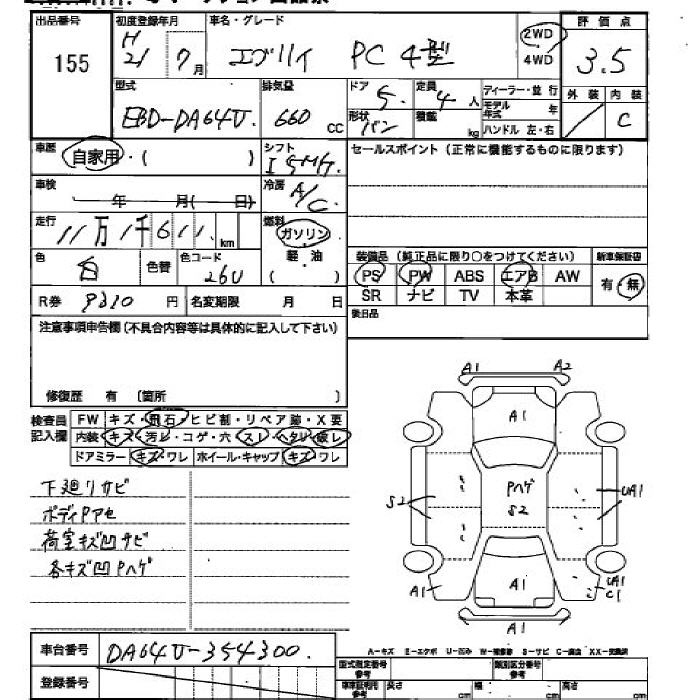 出品番号 初度登録年月 車名・グレード 評価点
155 H21 7月 エブリイ PC 4型 2WD 4WD 3.5
型式 排気量 ドア 定員 ディーラー・並行 外装 内装
EBD-DA64V 660 CC 5 4人 モデル年式 年 C
形状 バン 積載 kg ハンドル 左・右
車歴 自家用・( ) シフト セールスポイント(正常に機能するものに限ります)
I 5MT
車検 年 月( 日) 冷房 A/C
走行 11万1千611 km 燃料 ガソリン
軽・油
( )
色 白 色替 色コード 26U 装備品(純正品に限り○をつけてください) 新車保証書
PS PW ABS エアB AW 有・無
R券 9210円 名変期限 月 日 SR ナビ TV 本革
注意事項申告欄(不具合内容等は具体的に記入して下さい) 後日品
修復歴 有 〔箇所 〕
検査員記入欄 FW キズ・飛石・ヒビ割・リペア跡・X要
内装 キズ・汚レ・コゲ・穴・スレ・ヘタリ・破レ
ドアミラー キズ・ワレ ホイール・キャップ キズ・ワレ
A1 A2
A1
下廻りサビ
ボディPアセ
荷室キズ凹サビ
各キズ凹Pハゲ
S2 Pハゲ S2 UA1
A1 A1 UA1 C1
A1
A-キズ E-エクボ U-凹み W-補修跡 S-サビ C-腐蝕 XX-交換済
車台番号 DA64V-354300
登録番号
型式指定番号 参考 類別区分番号 参考
車庫証明用 参考 長さ cm 幅 cm 高さ cm